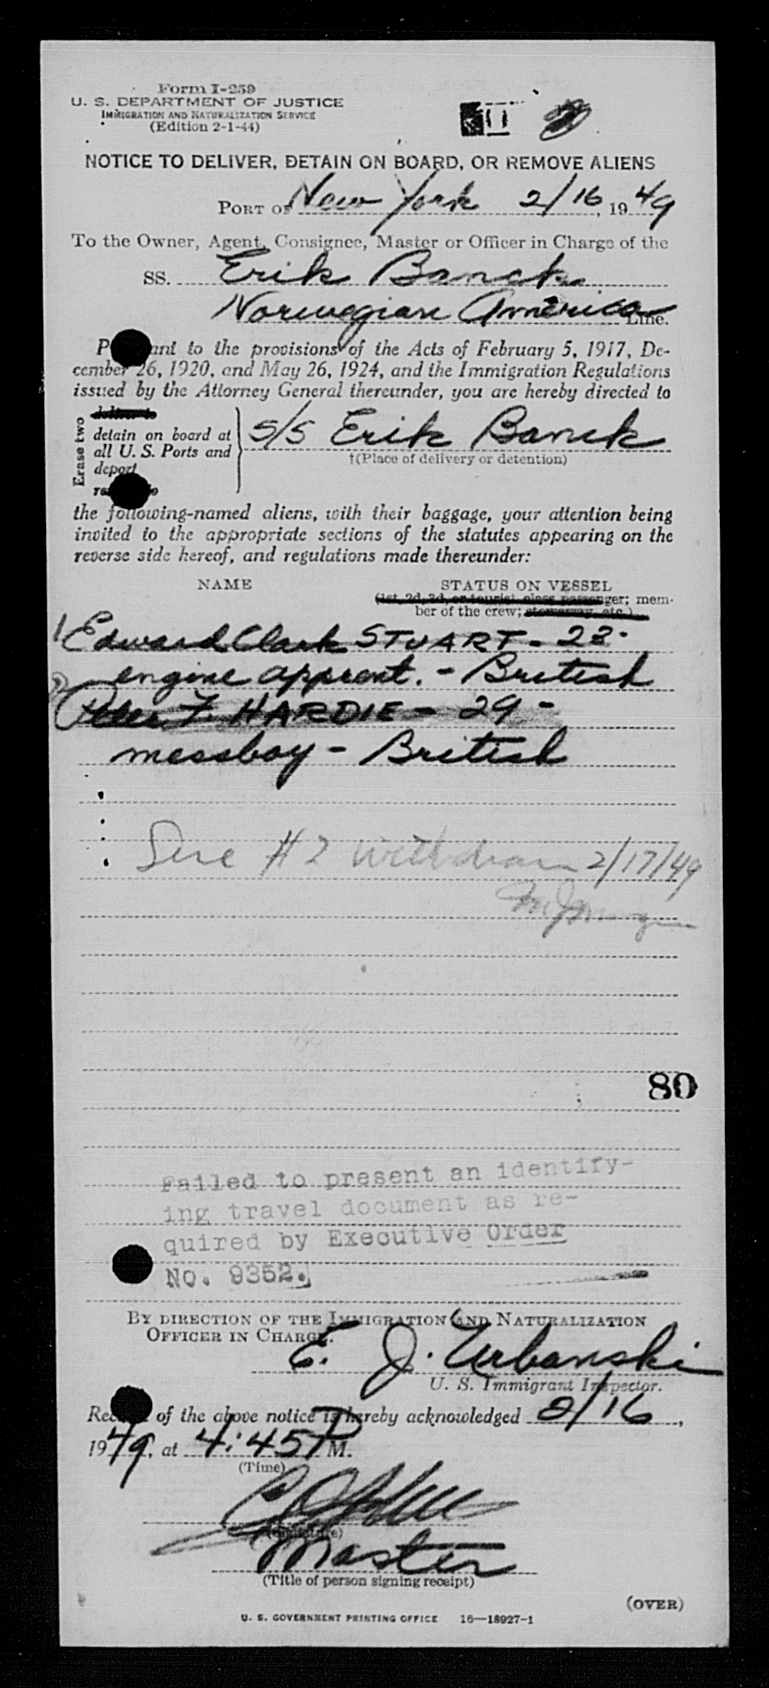 Form I-259
U. S. DEPARTMENT OF JUSTICE
IMMIGRATION AND NATURALIZATION SERVICE
(Edition 2-1-44)
NOTICE TO DELIVER, DETAIN ON BOARD, OR REMOVE ALIENS
PORT OF New York 2/16, 1949
To the Owner, Agent, Consignee, Master or Officer in Charge of the
SS. Erik Banck
Norwegian America Line.
ant to the provisions of the Acts of February 5, 1917, De-
cember 26, 1920, and May 26, 1924, and the Immigration Regulations
issued by the Attorney General thereunder, you are hereby directed to
Erase two
detain on board at
all U. S. Ports and
deport
S/S Erik Banck
†(Place of delivery or detention)
the following-named aliens, with their baggage, your attention being
invited to the appropriate sections of the statutes appearing on the
reverse side hereof, and regulations made thereunder:
NAME STATUS ON VESSEL
(1st, 2d, 3d, or tourist class passenger; mem-
ber of the crew; stowaway, etc.)
1) Edward Clark STUART - 23 -
engine apprent. - British
2) Peter F. HARDIE - 29 -
messboy - British
Line #2 withdrawn 2/17/49
80
Failed to present an identify-
ing travel document as re-
quired by Executive Order
No. 9352.
BY DIRECTION OF THE IMMIGRATION AND NATURALIZATION
OFFICER IN CHARGE.
E. J. Urbanski
U. S. Immigrant Inspector.
of the above notice is hereby acknowledged 2/16,
1949, at 4:45 P M.
(Time)
(Signature)
Master
(Title of person signing receipt)
(OVER)
U. S. GOVERNMENT PRINTING OFFICE 16—18927-1